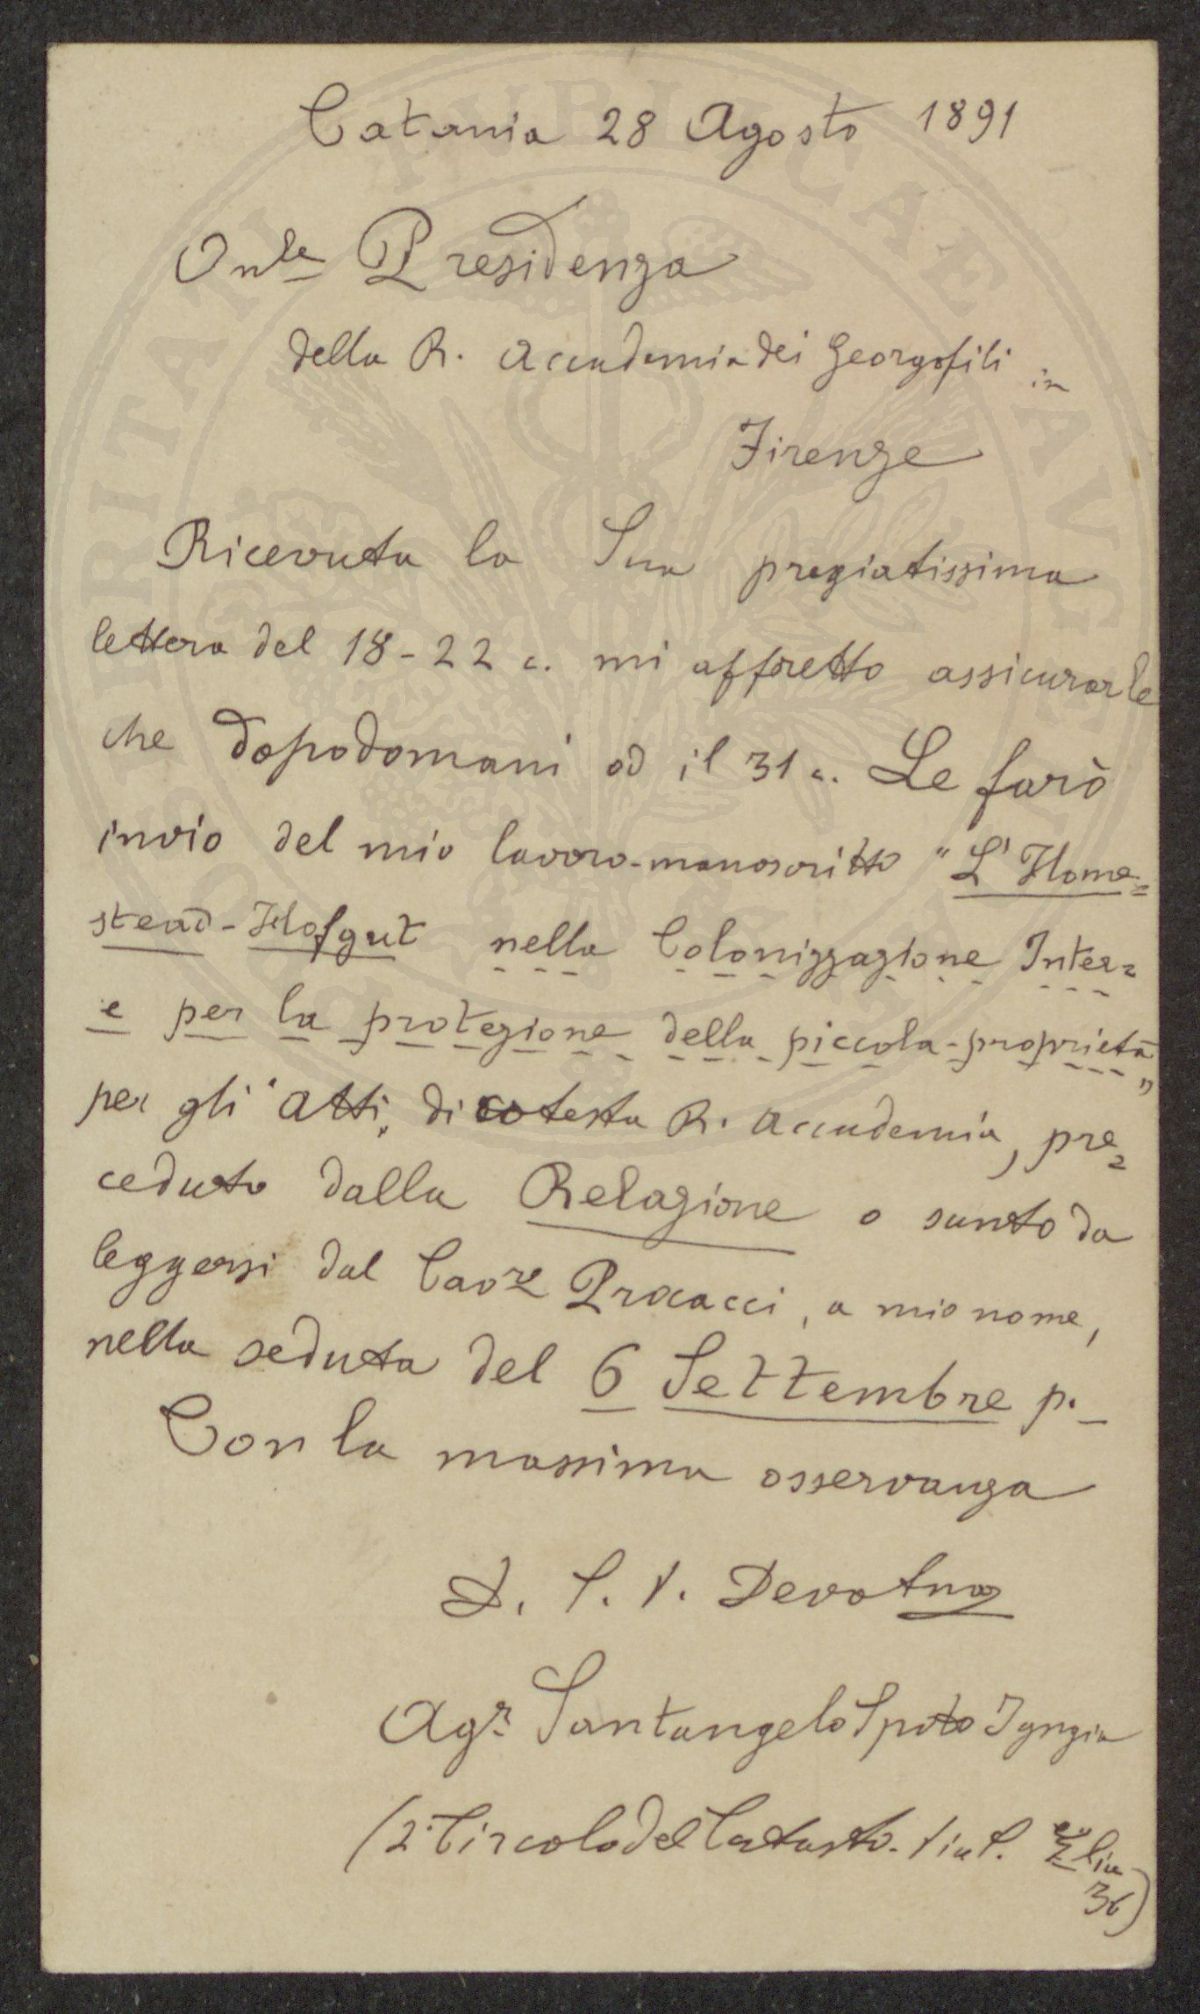 Catania 28 Agosto 1891
Onle Presidenza
della R. Accademia dei Georgofili in
Firenze
Ricevuta la Sua pregiatissima
lettera del 18-22 c. mi affretto assicurarle
che dopodomani od il 31 c. Le farò
invio del mio lavoro-manoscritto "L'Home=
stead-Hofgut nella Colonizzazione Inter=
e per la protezione della piccola-proprietà"
per gli "Atti" di cotesta R. Accademia, pre=
ceduto dalla Relazione o sunto da
leggersi dal Cavre Procacci, a mio nome,
nella seduta del 6 Settembre p.
Con la massima osservanza
D. S. V. Devotmo
Agr. Santangelo Spoto
(2° Circolo del Catasto. Via S. Elia
36)